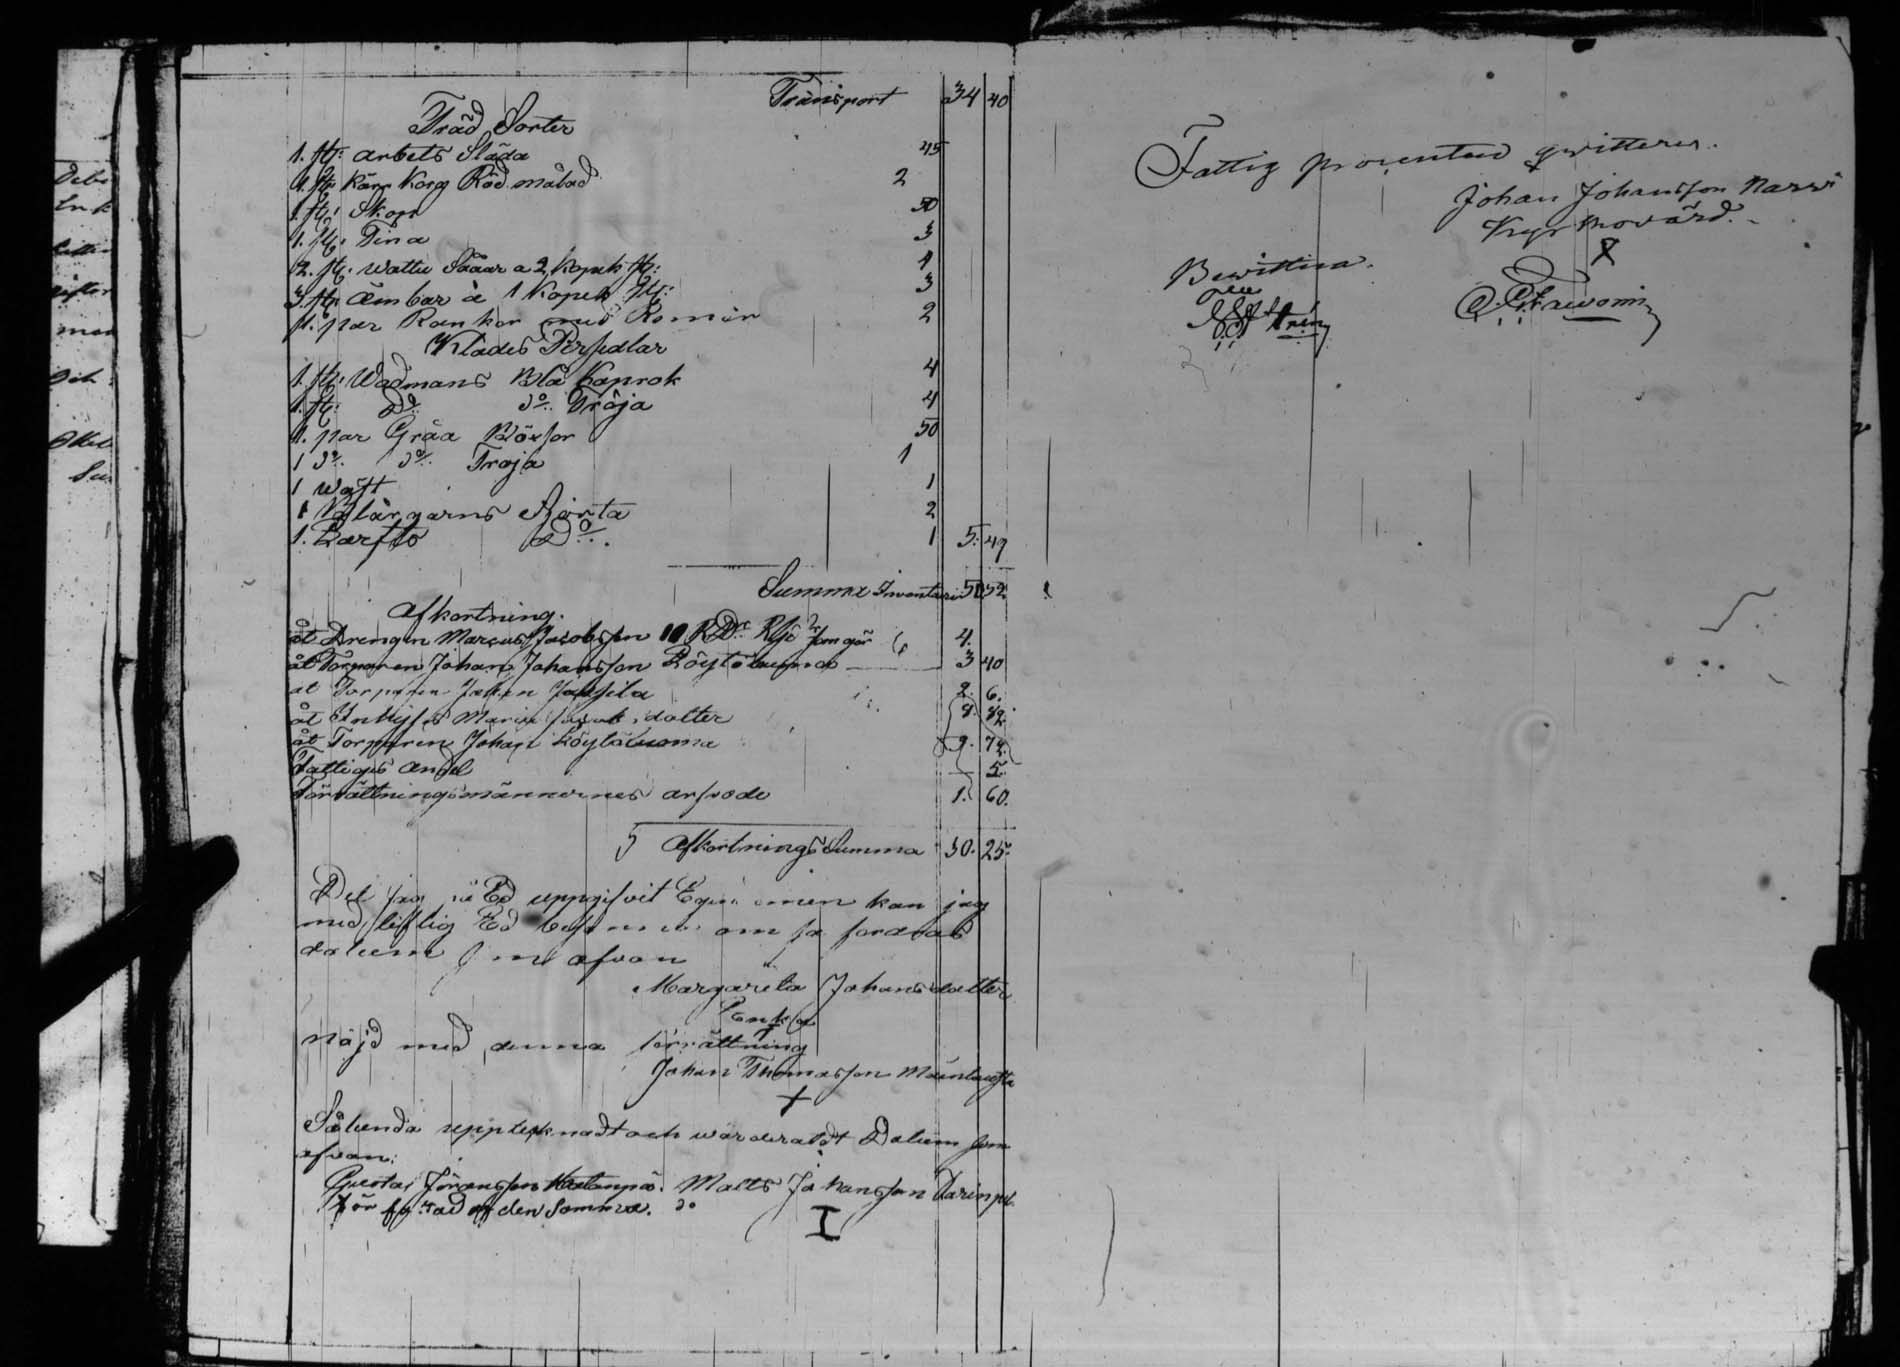 Transport 34 40
Träd Sorter
1. st: arbets Släda 45
1. st: Kärr Korg Röd målad 2
1. st: Skop 50
1. st: Tina 3
2. st: Wattu Sååar a 2 Kopek st: 4
3. st: Ämbar à 1 Kopek st: 3
1. par Rankor med Remar 2
Klädes Persedlar
1. st: Wadmans Blå Kaprok 4
1. st: Do. do. Tröja 4
1. par Gråa Böxsor 50
1 do. do. Troja 1
1 Wäst 1
1 Blårgarns Sjorta 2
1. Larfts Do. 1 5. 49
Summa Inventarii 50 52
Afkortning.
åt Drengen Marcus Jacobsson 4.
åt Torparen Johan Johansson Löytöluoma 3 40
åt Torparen Johan 2. 6.
åt Inhyses Maria Jacobsdotter 8. 82.
åt Torparen Johan Löytöluoma 9. 72.
Fattiges andel 5.
Förrättningsmännernes arfvode 1. 60.
Afkortnings Summa 30. 25.
Det jag så Ed uppgifvit Egendomen kan jag
med liflig Ed om så fordras
datum som ofvan
Margareta Johansdotter
Enka
Nöjd med denna förrättning
Johan Thomasson Mäntausta
X
Sålunda upptecknadt och wärderadt Datum som
ofvan:
Gustaf Jöransson Matts Johansson
af den Samma. do
I
Fattig procenten qvitterer.
Johan Johansson Narvi
Kyrkovärd.
X
Bevittna.